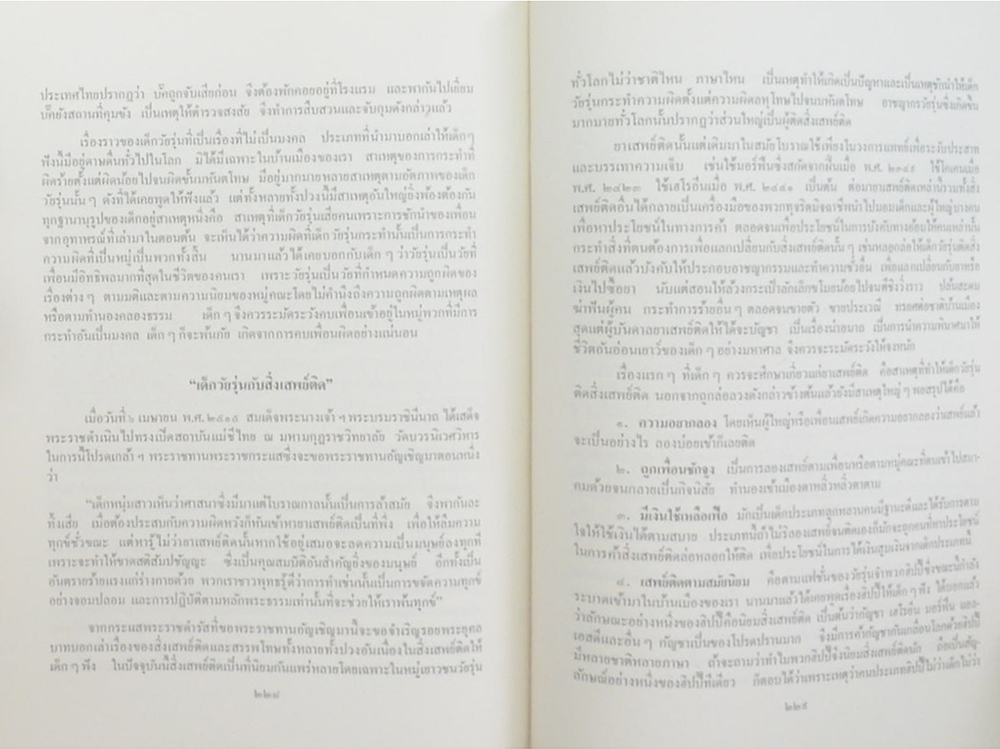 ประเทศไทยปรากฏว่า บค๊ถูกจับเสียก่อน จึงต้องพักคอยอยู่ที่โรงแรม และพากันไปเยี่ยม
บค๊ยังสถานที่คุมขัง เป็นเหตุให้ตำรวจสงสัย จึงทำการสืบสวนและจับกุมดังกล่าวแล้ว
เรื่องราวของเด็กวัยรุ่นที่เป็นเรื่องที่ไม่เป็นมงคล ประเภทที่นำมาบอกเล่าให้เด็กๆ
ฟังนี้มีอยู่ดาษดื่นทั่วไปในโลก มิได้มีเฉพาะในบ้านเมืองของเรา สาเหตุของการกระทำที่
ผิดร้ายตั้งแต่ผิดน้อยไปจนผิดขั้นมหันตโทษ มีอยู่มากมายหลายสาเหตุตามอัตภาพของเด็ก
วัยรุ่นนั้น ๆ ดังที่ได้เคยพูดให้ฟังแล้ว แต่ทั้งหลายทั้งปวงนี้มีสาเหตุอันใหญ่ยิ่งพ้องต้องกัน
ทุกฐานานุรูปของเด็กอยู่สาเหตุหนึ่งคือ สาเหตุที่เด็กวัยรุ่นเสียคนเพราะการชักนำของเพื่อน
จากอุทาหรณ์ที่เล่ามาในตอนต้น จะเห็นได้ว่าความผิดที่เด็กวัยรุ่นกระทำนั้นเป็นการกระทำ
ความผิดที่เป็นหมู่เป็นพวกทั้งสิ้น นานมาแล้วได้เคยบอกกับเด็ก ๆ ว่าวัยรุ่นเป็นวัยที่
เพื่อนมีอิทธิพลมากที่สุดในชีวิตของคนเรา เพราะวัยรุ่นเป็นวัยที่กำหนดความถูกผิดของ
เรื่องต่าง ๆ ตามมติและตามความนิยมของหมู่คณะโดยไม่คำนึงถึงความถูกผิดตามเหตุผล
หรือตามทำนองคลองธรรม เด็ก ๆ จึงควรระมัดระวังคบเพื่อนเข้าอยู่ในหมู่พวกที่มีการ
กระทำอันเป็นมงคล เด็ก ๆ ก็จะพ้นภัย เกิดจากการคบเพื่อนผิดอย่างแน่นอน
“เด็กวัยรุ่นกับสิ่งเสพย์ติด”
เมื่อวันที่ ๖ เมษายน พ.ศ. ๒๕๑๕ สมเด็จพระนางเจ้า ฯ พระบรมราชินีนาถ ได้เสด็จ
พระราชดำเนินไปทรงเปิดสถาบันแม่ชีไทย ณ มหามกุฏราชวิทยาลัย วัดบวรนิเวศวิหาร
ในการนี้โปรดเกล้า ฯ พระราชทานพระราชกระแสซึ่งจะขอพระราชทานอัญเชิญมาตอนหนึ่ง
ว่า
“เด็กหนุ่มสาวเห็นว่าศาสนาซึ่งมีมาแต่โบราณกาลนั้นเป็นการล้าสมัย จึงพากันละ
ทิ้งเสีย เมื่อต้องประสบกับความผิดหวังก็หันเข้าหายาเสพย์ติดเป็นที่พึ่ง เพื่อให้ลืมความ
ทุกข์ชั่วขณะ แต่หารู้ไม่ว่ายาเสพย์ติดนั้นหากใช้อยู่เสมอจะลดความเป็นมนุษย์ลงทุกที
เพราะจะทำให้ขาดสติสัมปชัญญะ ซึ่งเป็นคุณสมบัติอันสำคัญยิ่งของมนุษย์ อีกทั้งเป็น
อันตรายร้ายแรงแก่ร่างกายด้วย พวกเราชาวพุทธรู้ดีว่าการทำเช่นนั้นเป็นการขจัดความทุกข์
อย่างจอมปลอม และการปฏิบัติตามหลักพระธรรมเท่านั้นที่จะช่วยให้เราพ้นทุกข์”
จากกระแสพระราชดำรัสที่ขอพระราชทานอัญเชิญมานี้จะขอจำเริญรอยพระยุคล
บาทบอกเล่าเรื่องของสิ่งเสพย์ติดและสรรพโทษทั้งหลายทั้งปวงอันเนื่องในสิ่งเสพย์ติดให้
เด็ก ๆ ฟัง ในปัจจุบันนี้สิ่งเสพย์ติดเป็นที่นิยมกันแพร่หลายโดยเฉพาะในหมู่เยาวชนวัยรุ่น
๒๒๘
ทั่วโลกไม่ว่าชาติไหน ภาษาไหน เป็นเหตุทำให้เกิดเป็นปัญหาและเป็นเหตุชักนำให้เด็ก
วัยรุ่นกระทำความผิดตั้งแต่ความผิดลหุโทษไปจนมหันตโทษ อาชญากรวัยรุ่นซึ่งเกิดขึ้น
มากมายทั่วโลกนั้นปรากฏว่าส่วนใหญ่เป็นผู้ติดสิ่งเสพย์ติด
ยาเสพย์ติดนั้นแต่เดิมมาในสมัยโบราณใช้เพียงในวงการแพทย์เพื่อระงับประสาท
และบรรเทาความเจ็บ เช่นใช้มอร์ฟีนซึ่งสกัดจากฝิ่นเมื่อ พ.ศ. ๒๓๔๙ ใช้โคเคนเมื่อ
พ.ศ. ๒๔๒๓ ใช้เฮโรอีนเมื่อ พ.ศ. ๒๔๔๑ เป็นต้น ต่อมายาเสพย์ติดเหล่านี้รวมทั้งสิ่ง
เสพย์ติดอื่นได้กลายเป็นเครื่องมือของพวกทุจริตมิจฉาชีพนำไปมอมเด็กและผู้ใหญ่บางคน
เพื่อหาประโยชน์ในทางการค้า ตลอดจนเพื่อประโยชน์ในการบังคับทางอ้อมให้คนเหล่านั้น
กระทำสิ่งที่ตนต้องการเพื่อแลกเปลี่ยนกับสิ่งเสพย์ติดนั้น ๆ เช่นหลอกล่อให้เด็กวัยรุ่นติดสิ่ง
เสพย์ติดแล้วบังคับให้ประกอบอาชญากรรมและทำความชั่วอื่น เพื่อแลกเปลี่ยนกับยาหรือ
เงินไปซื้อยา นับแต่สอนให้ล้วงกระเป๋าลักเล็กขโมยน้อยไปจนตีชิงวิ่งราว ปล้นสะดม
ฆ่าฟันผู้คน กระทำการร้ายอื่นๆ ตลอดจนขายตัว ขายประเวณี ทรยศต่อชาติบ้านเมือง
สุดแต่ผู้บันดาลยาเสพย์ติดให้ได้จะบัญชา เป็นเรื่องน่าอนาถ เป็นการนำความพินาศมาให้
ชีวิตอันอ่อนเยาว์ของเด็ก ๆ อย่างมหาศาล จึงควรจะระมัดระวังให้จงหนัก
เรื่องแรกๆ ที่เด็กๆ ควรจะศึกษาเกี่ยวแก่ยาเสพย์ติด คือสาเหตุที่ทำให้เด็กวัยรุ่น
ติดสิ่งเสพย์ติด นอกจากถูกล่อลวงดังกล่าวข้างต้นแล้วยังมีสาเหตุใหญ่ๆ พอสรุปได้คือ
๑. ความอยากลอง โดยเห็นผู้ใหญ่หรือเพื่อนเสพย์เกิดความอยากลองว่าเสพย์แล้ว
จะเป็นอย่างไร ลองบ่อยเข้าก็เลยติด
๒. ถูกเพื่อนชักจูง เป็นการลองเสพย์ตามเพื่อนหรือตามหมู่คณะที่ตนเข้าไปสมา-
คมด้วยจนกลายเป็นกิจนิสัย ทำนองเข้าเมืองตาหลิ่วหลิ่วตาตาม
๓. มีเงินใช้เหลือเฟือ มักเป็นเด็กประเภทลูกหลานคนมีฐานะดีและได้รับการตาม
ใจให้ใช้เงินได้ตามสบาย ประเภทนี้ถ้าไม่ริลองเสพย์จนติดเองก็มักจะถูกคนที่หาประโยชน์
ในการค้าสิ่งเสพย์ติดล่อหลอกให้ติด เพื่อประโยชน์ในการได้เงินสูบเงินจากเด็กประเภทนี้
๔. เสพย์ติดตามสมัยนิยม คือตามแฟชั่นของวัยรุ่นจำพวกฮิปปี้ซึ่งขณะนี้กำลัง
ระบาดเข้ามาในบ้านเมืองของเรา นานมาแล้วได้เคยพูดเรื่องฮิปปี้ให้เด็กๆ ฟัง ได้บอกแล้ว
ว่าลักษณะอย่างหนึ่งของฮิปปี้คือนิยมสิ่งเสพย์ติด เป็นต้นว่ากัญชา เฮโรอีน มอร์ฟีน แอล-
เอสดีและอื่นๆ กัญชาเป็นของโปรดปรานมาก จึงมีการค้ากัญชากันเกลื่อนโลกด้วยฮิปปี้
มีหลายชาติหลายภาษา ถ้าจะถามว่าทำไมพวกฮิปปี้จึงนิยมสิ่งเสพย์ติดนัก ถือเป็นสัญ-
ลักษณ์อย่างหนึ่งของฮิปปี้ทีเดียว ก็ตอบได้ว่าเพราะเหตุว่าคนประเภทฮิปปี้ไม่ว่าเด็กไม่ว่า
๒๒๙